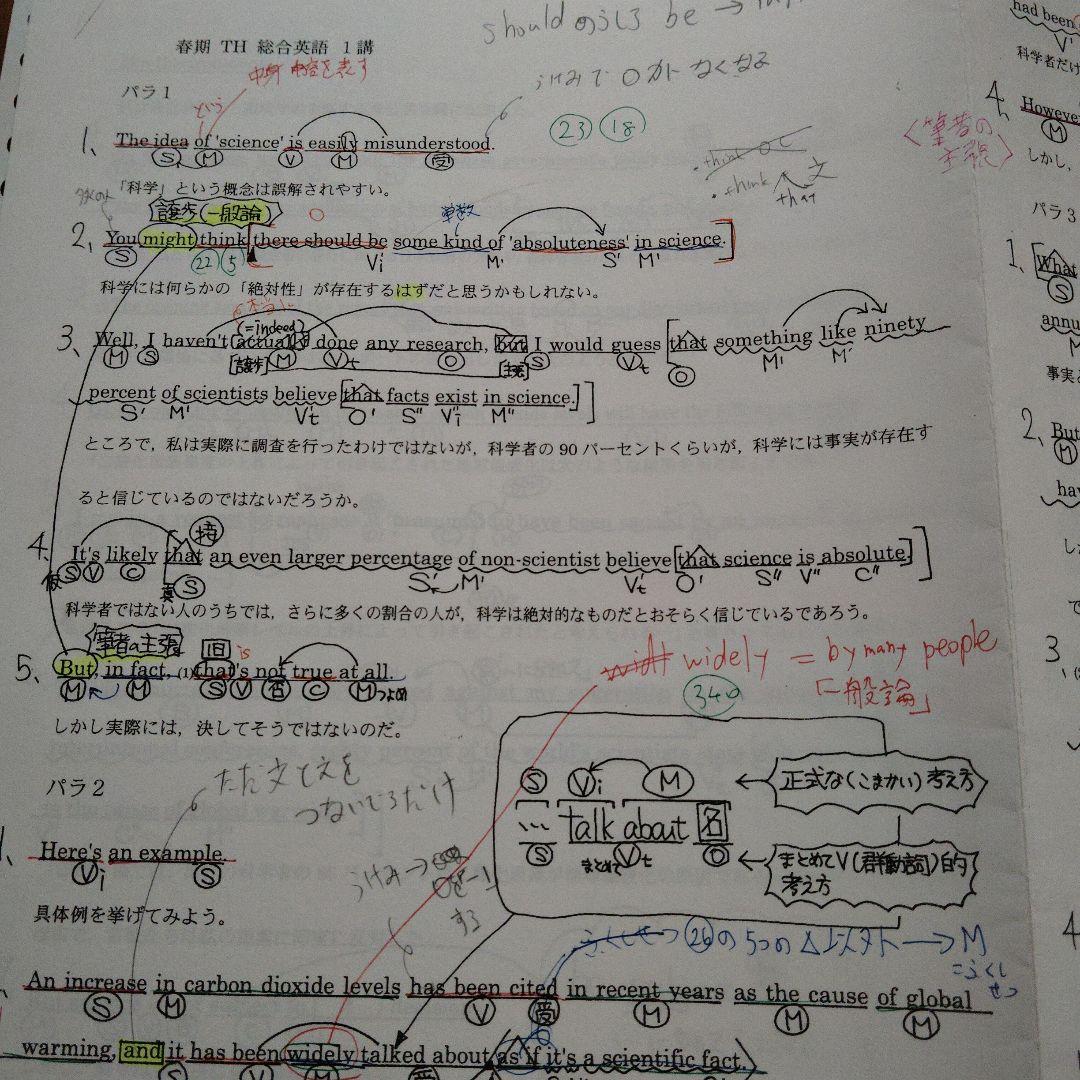 shouldのうしろ be →
春期 TH 総合英語 1講
中身 内容を表す
パラ1
という
うけみで Oが1個なくなる
1、 The idea of 'science' is easily misunderstood.
S M V M 受
23 18
「科学」という概念は誤解されやすい。
think O C
・think 文
that
譲歩 一般論
O
単数
2、 You might think [there should be some kind of 'absoluteness' in science.]
S 22 5 Vi M' S' M'
科学には何らかの「絶対性」が存在するはずだと思うかもしれない。
本当に
(=indeed)
3、 Well, I haven't actually done any research, but I would guess [that something like ninety
M S [譲歩] M Vt O [主張] S Vt O M' M'
percent of scientists believe [that facts exist in science.]]
S' M' Vt' O' S" Vi" M"
ところで，私は実際に調査を行ったわけではないが，科学者の90パーセントくらいが，科学には事実が存在す
ると信じているのではないだろうか。
接
4. It's likely [that an even larger percentage of non-scientist believe [that science is absolute.]]
仮S V C 真S S' M' Vt' O' S" V" C"
科学者ではない人のうちでは，さらに多くの割合の人が，科学は絶対的なものだとおそらく信じているであろう。
筆者の主張
is
5、 But, in fact, (1)that's not true at all.
M M S V 否 C M つよめ
しかし実際には，決してそうではないのだ。
widely = by many people
「一般論」
340
パラ2
ただ文と文を
つないでるだけ
S Vi M ← 正式な(こまかい)考え方
… talk about 名
S まとめてVt O ← まとめてV(群動詞)的
考え方
1、 Here's an example.
Vi S
具体例を挙げてみよう。
うけみ→
する
26の5つの → M
=ふくしせつ
An increase in carbon dioxide levels has been cited in recent years as the cause of global
S M V 受 M M M
warming, and it has been widely talked about as if it's a scientific fact.
S V M 受
had been
V'
科学者だけ
4、 However
M
しかし，
<筆者の
主張>
パラ3
1、 [What
S
annu
M
事実と
2、 But
M
hav
3、
4